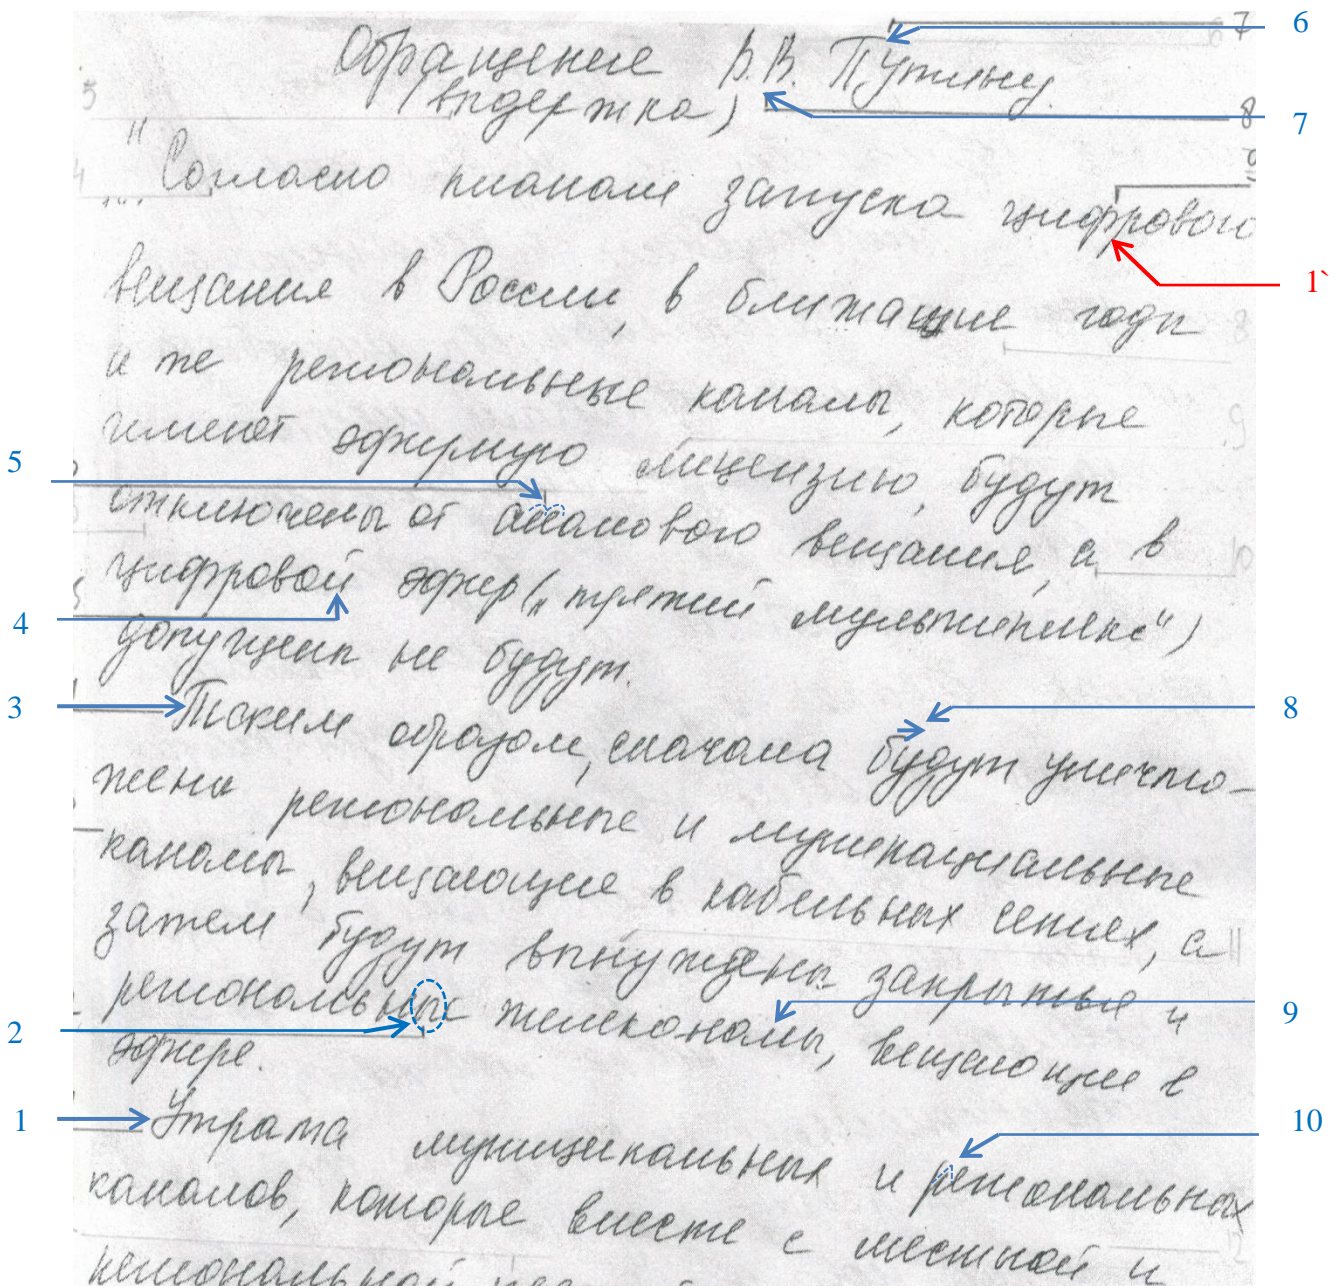 Обращение В.В. Путину.
(выдержка)
"Согласно планам запуска цифрового
вещания в России, в ближащие годы
и те региональные каналы, которые
имеют эфирную лицензию, будут
отключены от аналового вещания, а в
цифровой эфир („третий мультиплекс")
допущены не будут.
Таким образом, сначала будут уничто-
жены региональные и муниципальные
каналы, вещающие в кабельных сетях, а
затем будут вынуждены закрыться и
региональные телеканалы, вещающие в
эфире.
Утрата муниципальных и региональных
каналов, которые вместе с местной и
региональной
1
2
3
4
5
6
7
8
9
10
1`
7
8
9
3
4
8
9
10
11
12